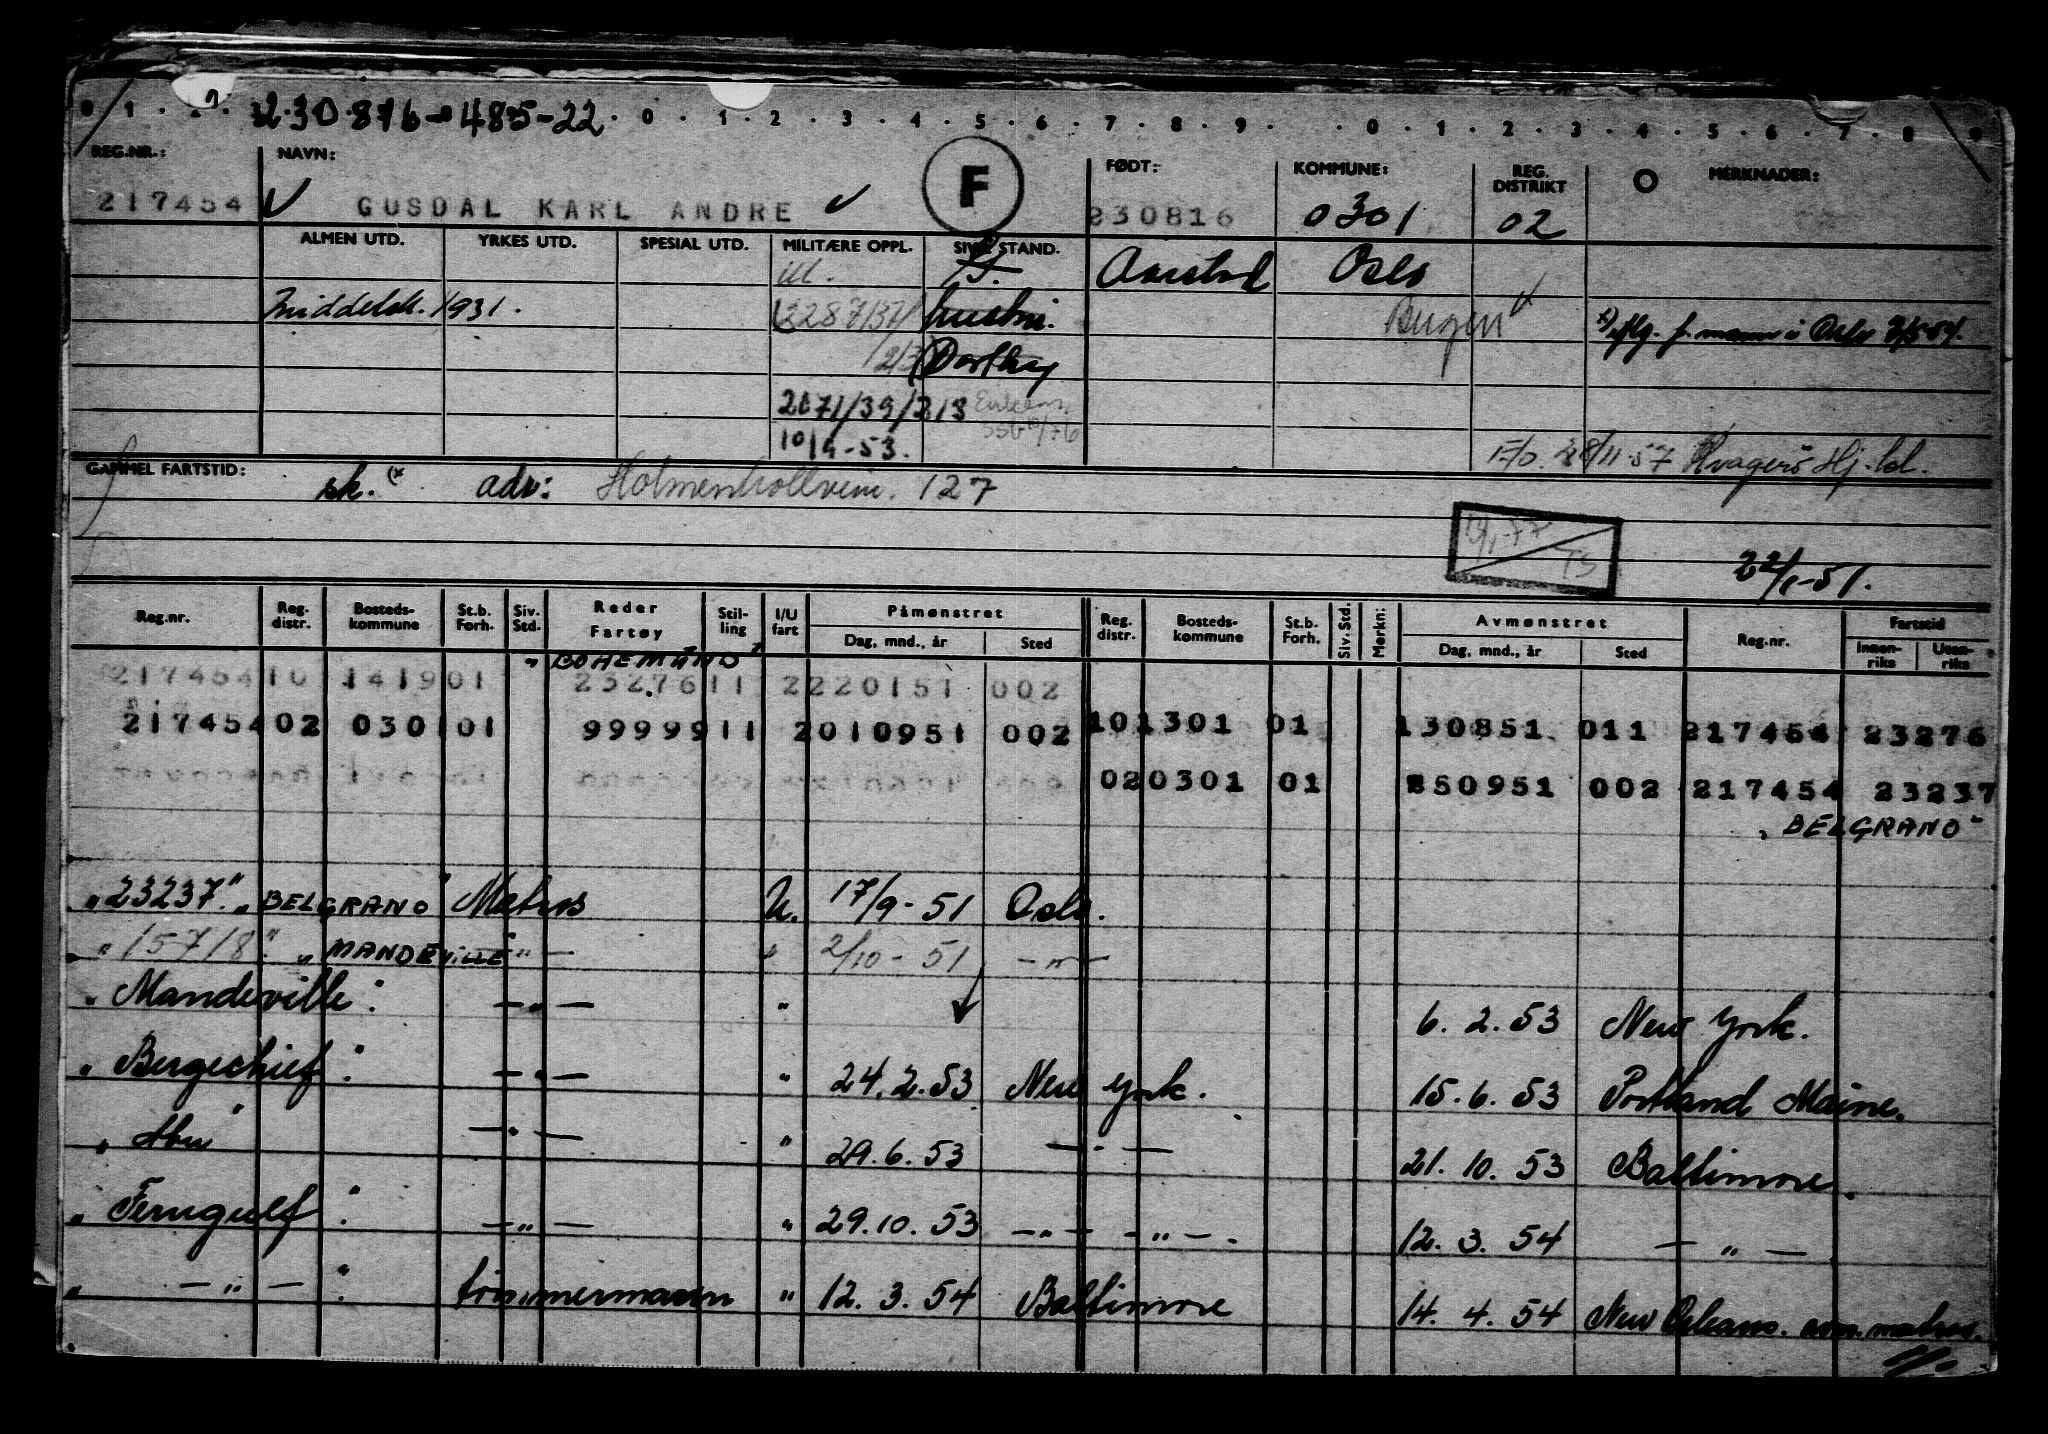 0 1 . . 230876-48522 . 0 . 1 . 2 . 3 . 4 . 5 . 6 . 7 . 8 . 9 . . 0 . 1 . 2 . 3 . 4 . 5 . 6 . 7 . 8 9
REG.NR.: NAVN: F FØDT: KOMMUNE: REG. DISTRIKT O MERKNADER:
217454 GUSDAL KARL ANDRE 230816 0301 02
ALMEN UTD. YRKES UTD. SPESIAL UTD. MILITÆRE OPPL. SIV. STAND.
ill. Oslo
Middelsk. 1931. hustru. Bergen i Oslo
Dorthy
2071/39/213
10/9-53.
28/11-57 Hj.bl.
GAMMEL FARTSTID: sk. adr: Holmenkollveien. 127
22/1-51.
Reg.nr. Reg. distr. Bosteds-kommune St.b. Forh. Siv. Std. Reder Fartøy Stil-ling I/U fart Påmønstret Reg. distr. Bosteds-kommune St.b. Forh. Siv. Std. Merkn: Avmønstret Reg.nr. Fartstid
Dag, mnd., år Sted Dag, mnd., år Sted Innen-riks Uten-riks
"BOHEMUND"
217454 10 1419 01 23276 11 2 220151 002
217454 02 0301 01 99999 11 2 010951 002 10 1301 01 130851 011 217454 23276
02 0301 01 250951 002 217454 23237
"BELGRANO"
"23237" "BELGRANO" Matros U. 17/9-51 Oslo.
"15718" "MANDEVILLE" — " — " 2/10-51 — " —
"Mandeville". — " — " 6.2.53 New York.
"Bergechief". — " — " 24.2.53 New York. 15.6.53 Portland Maine.
"Abu" — " — " 29.6.53 — " — 21.10.53 Baltimore.
"Ferngulf". — " — " 29.10.53 — " — — " — 12.3.54 — " —
" — " — ". tømmermann " 12.3.54 Baltimore 14.4.54 New Orleans. matros.